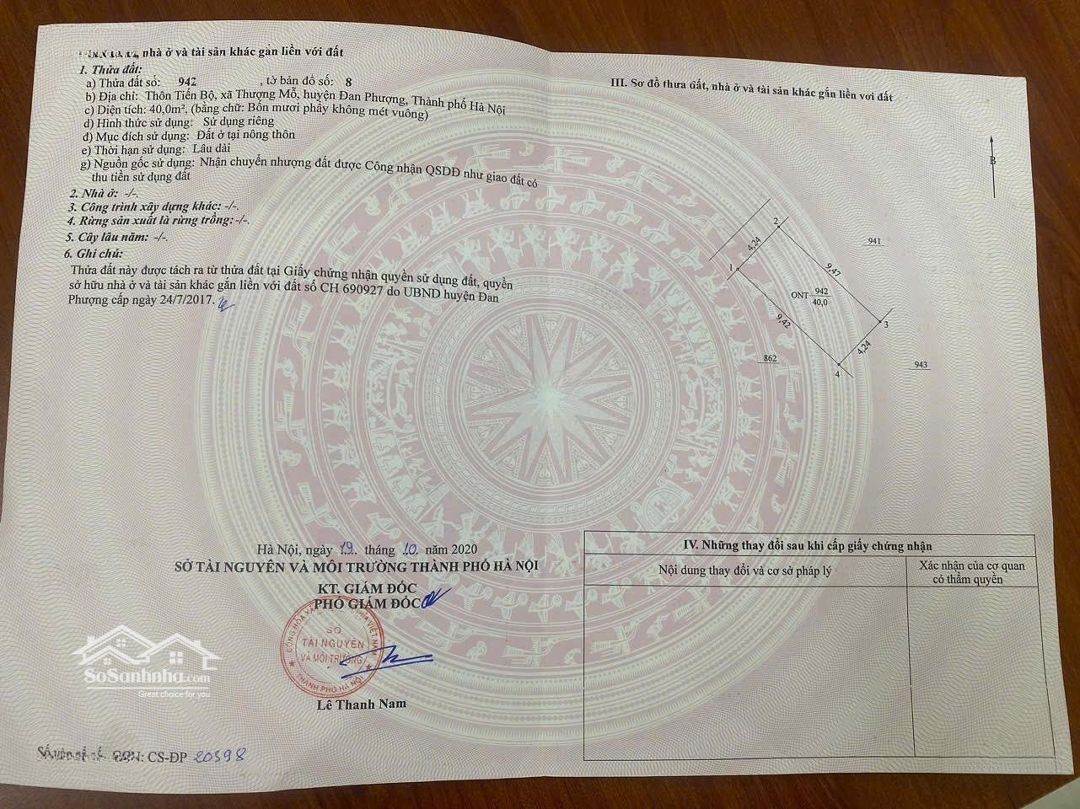 nhà ở và tài sản khác gắn liền với đất
1. Thửa đất:
a) Thửa đất số: 942 , tờ bản đồ số: 8
b) Địa chỉ: Thôn Tiến Bộ, xã Thượng Mỗ, huyện Đan Phượng, Thành phố Hà Nội
c) Diện tích: 40,0m², (bằng chữ: Bốn mươi phẩy không mét vuông)
d) Hình thức sử dụng: Sử dụng riêng
đ) Mục đích sử dụng: Đất ở tại nông thôn
e) Thời hạn sử dụng: Lâu dài
g) Nguồn gốc sử dụng: Nhận chuyển nhượng đất được Công nhận QSDĐ như giao đất có
thu tiền sử dụng đất
2. Nhà ở: -/-.
3. Công trình xây dựng khác: -/-.
4. Rừng sản xuất là rừng trồng: -/-.
5. Cây lâu năm: -/-.
6. Ghi chú:
Thửa đất này được tách ra từ thửa đất tại Giấy chứng nhận quyền sử dụng đất, quyền
sở hữu nhà ở và tài sản khác gắn liền với đất số CH 690927 do UBND huyện Đan
Phượng cấp ngày 24/7/2017.
Hà Nội, ngày 19. tháng 10. năm 2020
SỞ TÀI NGUYÊN VÀ MÔI TRƯỜNG THÀNH PHỐ HÀ NỘI
KT. GIÁM ĐỐC
PHÓ GIÁM ĐỐC
SỞ
TÀI NGUYÊN
VÀ MÔI TRƯỜNG
THÀNH PHỐ HÀ NỘI
Lê Thanh Nam
SoSanhnha.com
Great choice for you
CS-ĐP 20398
III. Sơ đồ thửa đất, nhà ở và tài sản khác gắn liền với đất
B
2
4,24
941
1
9,47
ONT 942
40,0
9,42
3
4,24
862
943
4
IV. Những thay đổi sau khi cấp giấy chứng nhận
Nội dung thay đổi và cơ sở pháp lý
Xác nhận của cơ quan
có thẩm quyền